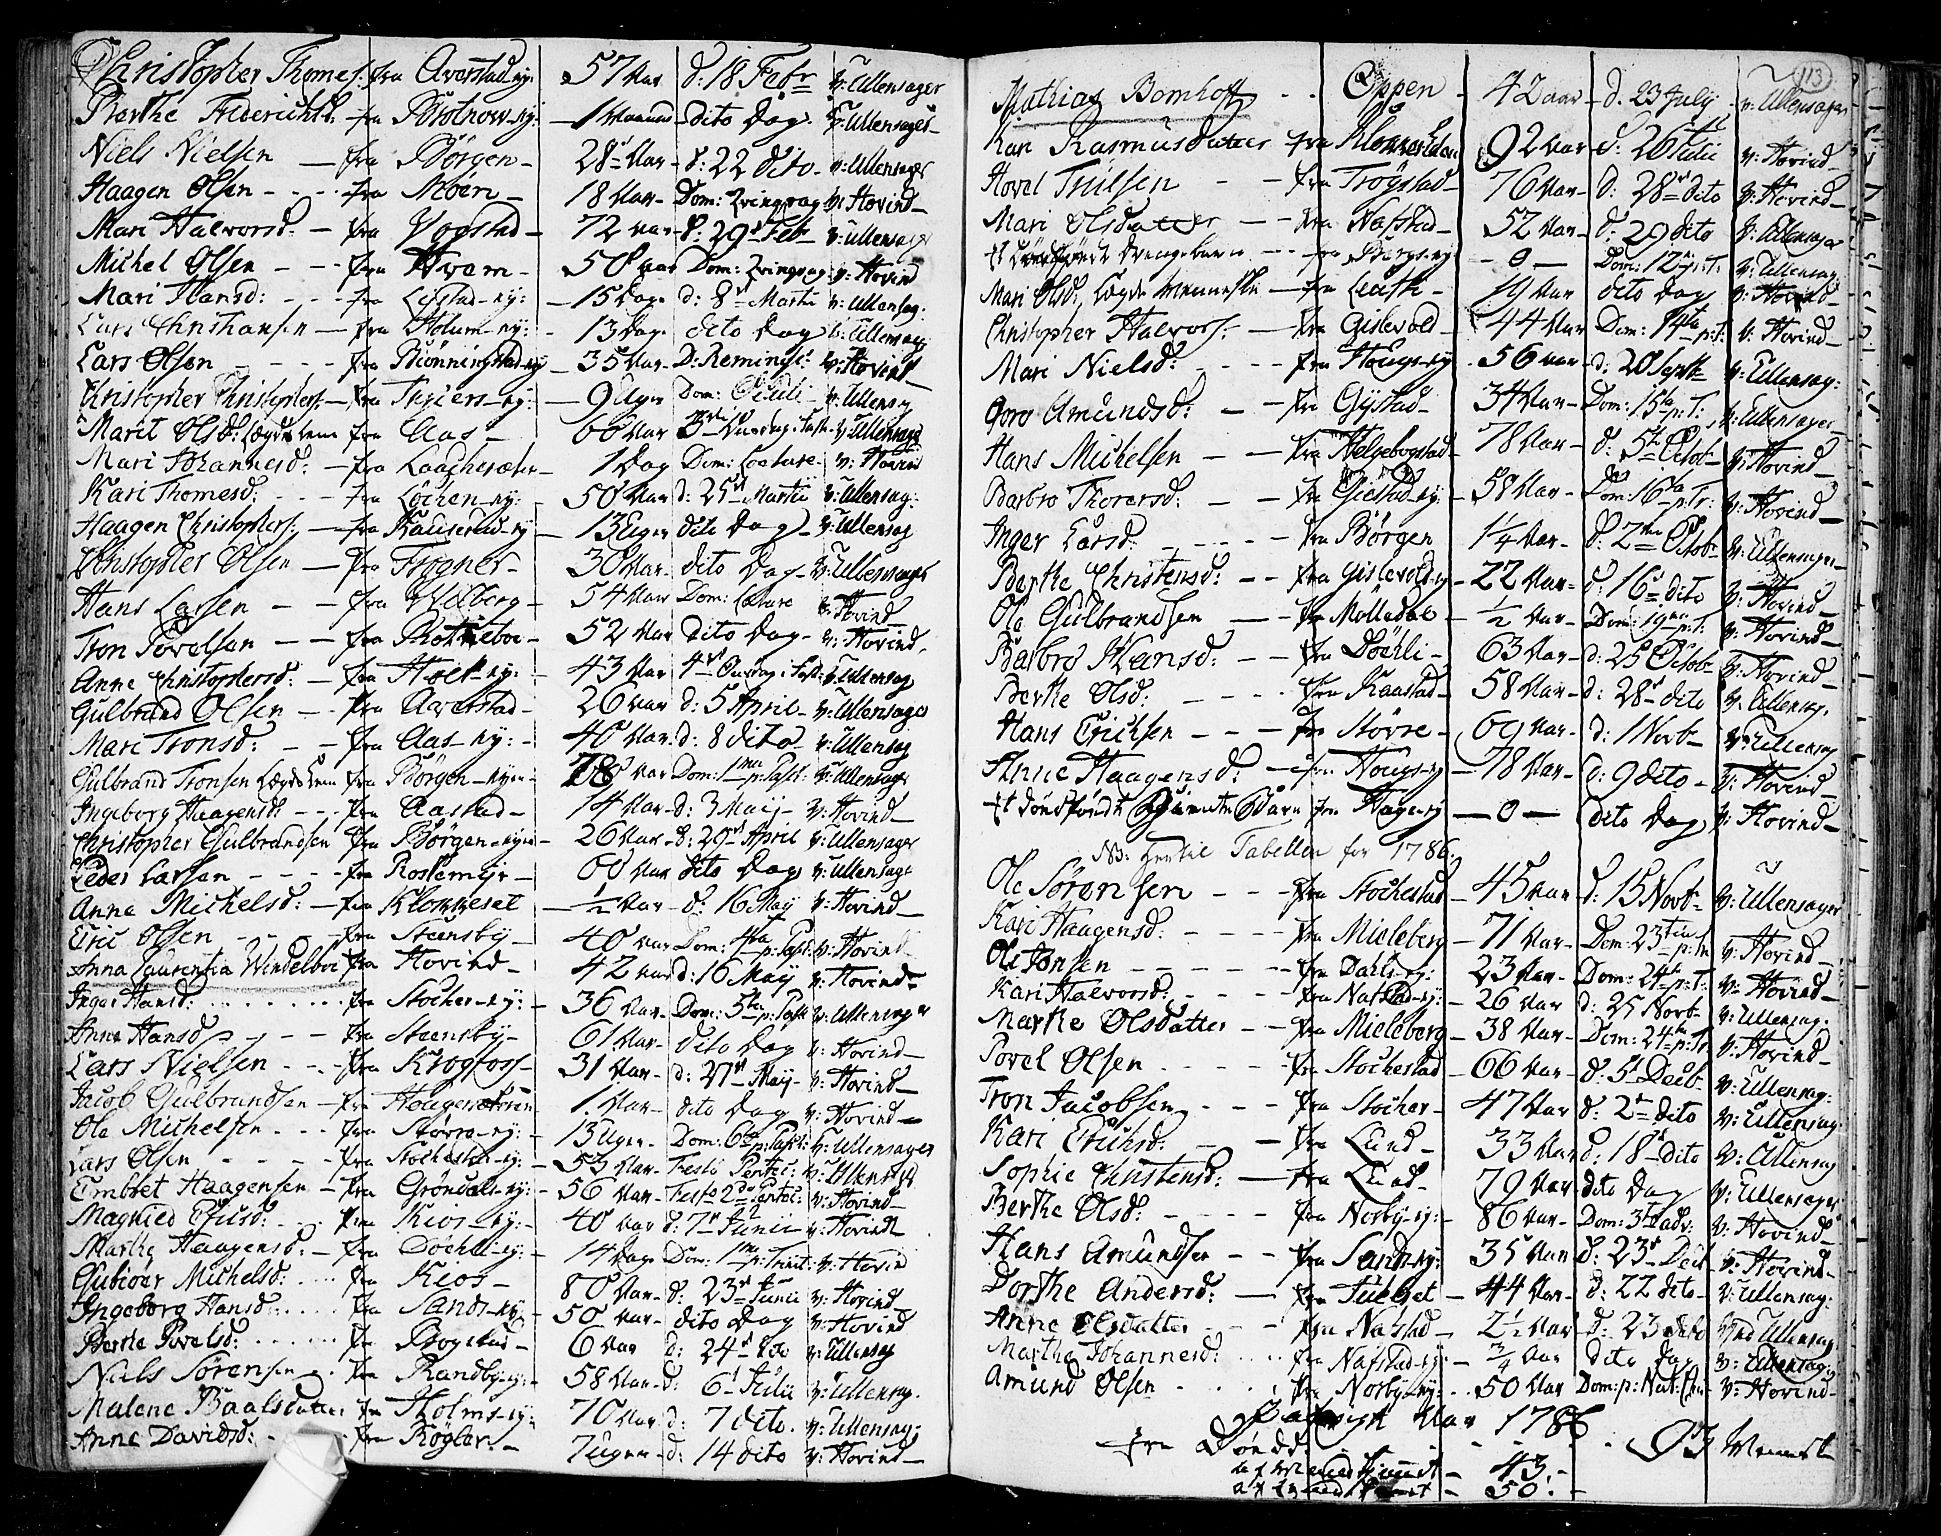 Christopher Thomes: fra Averstad ny: 57 Aar d: 18 Febr v: Ullensager
Berthe Frederichsd. fra ny: 1 Maaned dito Dag v: Ullensager
Niels Nielsen fra Børgen 28 Aar d: 22 dito v: Ullensager
Haagen Olsen fra Moen 18 Aar Dom: v: Hovind
Mari Halvorsd. fra Vogstad 72 Aar d: 29 Feb v: Ullensager
Michel Olsen fra Hvam 50 Aar Dom: v: Hovind
Mari Hansd: fra ny: 15 Dage d: 8 Martii v: Ullensag:
Lars Christiansen fra Holum ny: 13 Dage dito Dag v: Ullensag
Lars Olsen fra 35 Aar D: Reminisc: v: Hovind
Christopher Christophers: fra ny: 9 Uger Dom: Oculi v: Ullensag
Marit Olsd: Lægdslem fra Aas 66 Aar 3 Onsdag i Fasten v: Ullensag
Mari Johannesd: fra 1 Dag Dom: Lætare v: Hovind
Kari Thomesd: fra Løchen ny: 50 Aar d: 25 Martii v: Ullensag:
Haagen Christophers: fra Kauserud ny: 13 Uger dito Dag v: Ullensag
Christopher Olsen fra Frogner 30 Aar dito Dag v: Ullensager
Hans Larsen fra Wilberg 54 Aar Dom: Lætare v: Hovind
Tron Povelsen fra 52 Aar dito Dag v: Hovind
Anne Christophersd: fra Holt ny: 43 Aar 4 Onsdag i Fast: v: Ullensag
Gulbrand Olsen fra Averstad 26 Aar d: 5 April v: Ullensager
Mari Tronsd: fra Aas ny: 40 Aar d: 8 dito v: Ullensag
Gulbrand Tronsen Lægdslem fra Børgen nye: 78 Aar Dom: 1ma p: Pasch: v: Ullensag
Ingeborg Haagensd: fra Aastad 14 Aar d: 3 Maij v: Hovind
Christopher Gulbrandsen fra Børgen nye: 26 Aar d: 29 April v: Ullensager
Peder Larsen fra 60 Aar dito Dag v: Ullensage
Anne Michelsd: fra Klokkeset ½ Aar d: 16 Maij v: Hovind
Eric Olsen fra Steensby 40 Aar Dom: 4ta p: Pasch: v: Hovind
Anna Laurentia Windelboe fra Hovind 42 Aar d: 16 Maij v: Hovind
Inger Hansd: fra Stocher ny: 36 Aar Dom: 5ta p: Pasch v: Ullensager
Anne Hansd fra Steensby 61 Aar dito Dag v: Hovind
Lars Nielsen fra Krogfoss 31 Aar d: 27 Maij v: Hovind
Jacob Gulbrandsen fra 1 Aar dito Dag v: Hovind
Ole Michelsen fra ny: 13 Uger Dom: 6ta p: Pasch: v: Ullensager
Lars Olsen fra ny: 53 Aar Festo Pentec: v: Ullensag
Embret Haagensen fra Grøndal ny: 56 Aar Festo 2do Pentec: v: Hovind
Magnild fra Kios ny: 40 Aar d: 7 Junii v: Hovind
Marthe Haagensd. fra Døchli ny: 14 Dage Dom: 1ma p: Trinit: v: Hovind
Gubiør Michelsd: fra Kios 80 Aar d: 23 Junii v: Hovind
Ingeborg Hansd: fra Sands ny: 50 Aar dito Dag v: Hovind
Berthe Povelsd: fra 6 Aar d: 24 dito v: Ullensag
Niels Sørensen fra Randby ny: 58 Aar d: 6 Julii v: Ullensag.
Malene Baalsdatter fra Holms ny: 70 Aar d: 7 dito v: Ullensag:
Anne Davidsd: fra Røgler 7 Ugen d: 14 dito v: Hovind
113
Mathias Bomhoff Oppen 42 aar d. 23 July v: Ullensager
Kari Rasmusdatter fra 92 Aar d: 26 Julii v: Hovind
Hovel Truelsen fra Trøgstad 76 Aar d: 28 dito v: Hovind
Mari Olsdatter fra Nafstad 52 Aar d: 29 dito v: Ullensager
et Drengebarn fra ny: 0 Dom: 12 p: T: v: Ullensag
Mari Olsd: Lægde Menneske fra 19 Aar dito Dag v: Hovind
Christopher Halvors: fra Gislevold 44 Aar Dom: 14ta p: T: v: Hovind
Mari Nielsd: fra Houg ny 56 aar d. 20 Septb v: Ullensag:
Goro Amundsd: fra Gystad 34 Aar Dom: 15ta p: T: v: Ullensager
Hans Michelsen fra Helgebogstad 78 Aar d: 5 Octob v: Hovind
Barbro Thorersd: fra ny: 58 Aar Dom 16ta p: Tr: v: Hovind
Inger Larsd: fra Børgen 1¼ Aar d: 2 Octob v: Ullensager
Berthe Christensd: fra Gislevold ny 22 Aar d: 16 dito v: Hovind
Ole Gulbrandsen fra Mølledal ½ Aar Dom: 19 p: T: v: Hovind
Barbro Hansd: fra Døchli 63 Aar d: 25 Octob v: Hovind
Berthe Olsd: fra Kaastad 58 Aar d: 28 dito v: Ullensag.
Hans Erichsen fra Høvre 69 Aar d: 1 Novb v: Ullensag
Anne Haagensd: fra Houg ny 78 Aar d: 9 dito v: Hovind
et Barn fra ny 0 dito Dag v: Hovind
NB: Tabellen for 1786.
Ole Sørensen fra Stochestad 45 Aar d: 15 Novb v: Ullensager
Kari Haagensd: fra Mieleberg 71 Aar Dom: 23 p: v: Hovind
Ole Jonsen fra Dahls ny: 23 Aar Dom: 24 p: T: v: Hovind
Kari Halvorsd: fra Nafstad ny: 26 Aar d: 25 Novb v: Ullensag:
Marthe Olsdatter fra Mieleberg 38 Aar Dom: 24 p: Tr v: Hovind
Povel Olsen fra Stochestad 66 Aar d: 5 Decb v: Ullensag:
Tron Jacobsen fra Stocher 47 Aar d: 2 dito v: Ullensag:
Kari Erichsd: fra Lund 33 Aar d: 18 dito v: Ullensag
Sophie Christensd: fra Lund 79 Aar dito Dag v: Ullensager
Berthe Olsd: fra Norby ny: 86 Aar Dom: 3 adv: v: Hovind
Hans Amundsen fra Sand ny: 35 Aar d: 23 Decb v: Hovind
Dorthe Andersd: fra 44 Aar d: 22 dito v: Ullensag:
Anne Olsdatter fra Nafstad 2½ Aar d: 23 dito ved Ullensag
Marthe Johannesd: fra Nafstad ny: ¾ Aar dito Dag v: Ullensag:
Amund Olsen fra Norby ny: 50 Aar Dom: p: Nat: Chr: v: Hovind
Aar 1786
93
43.
50.